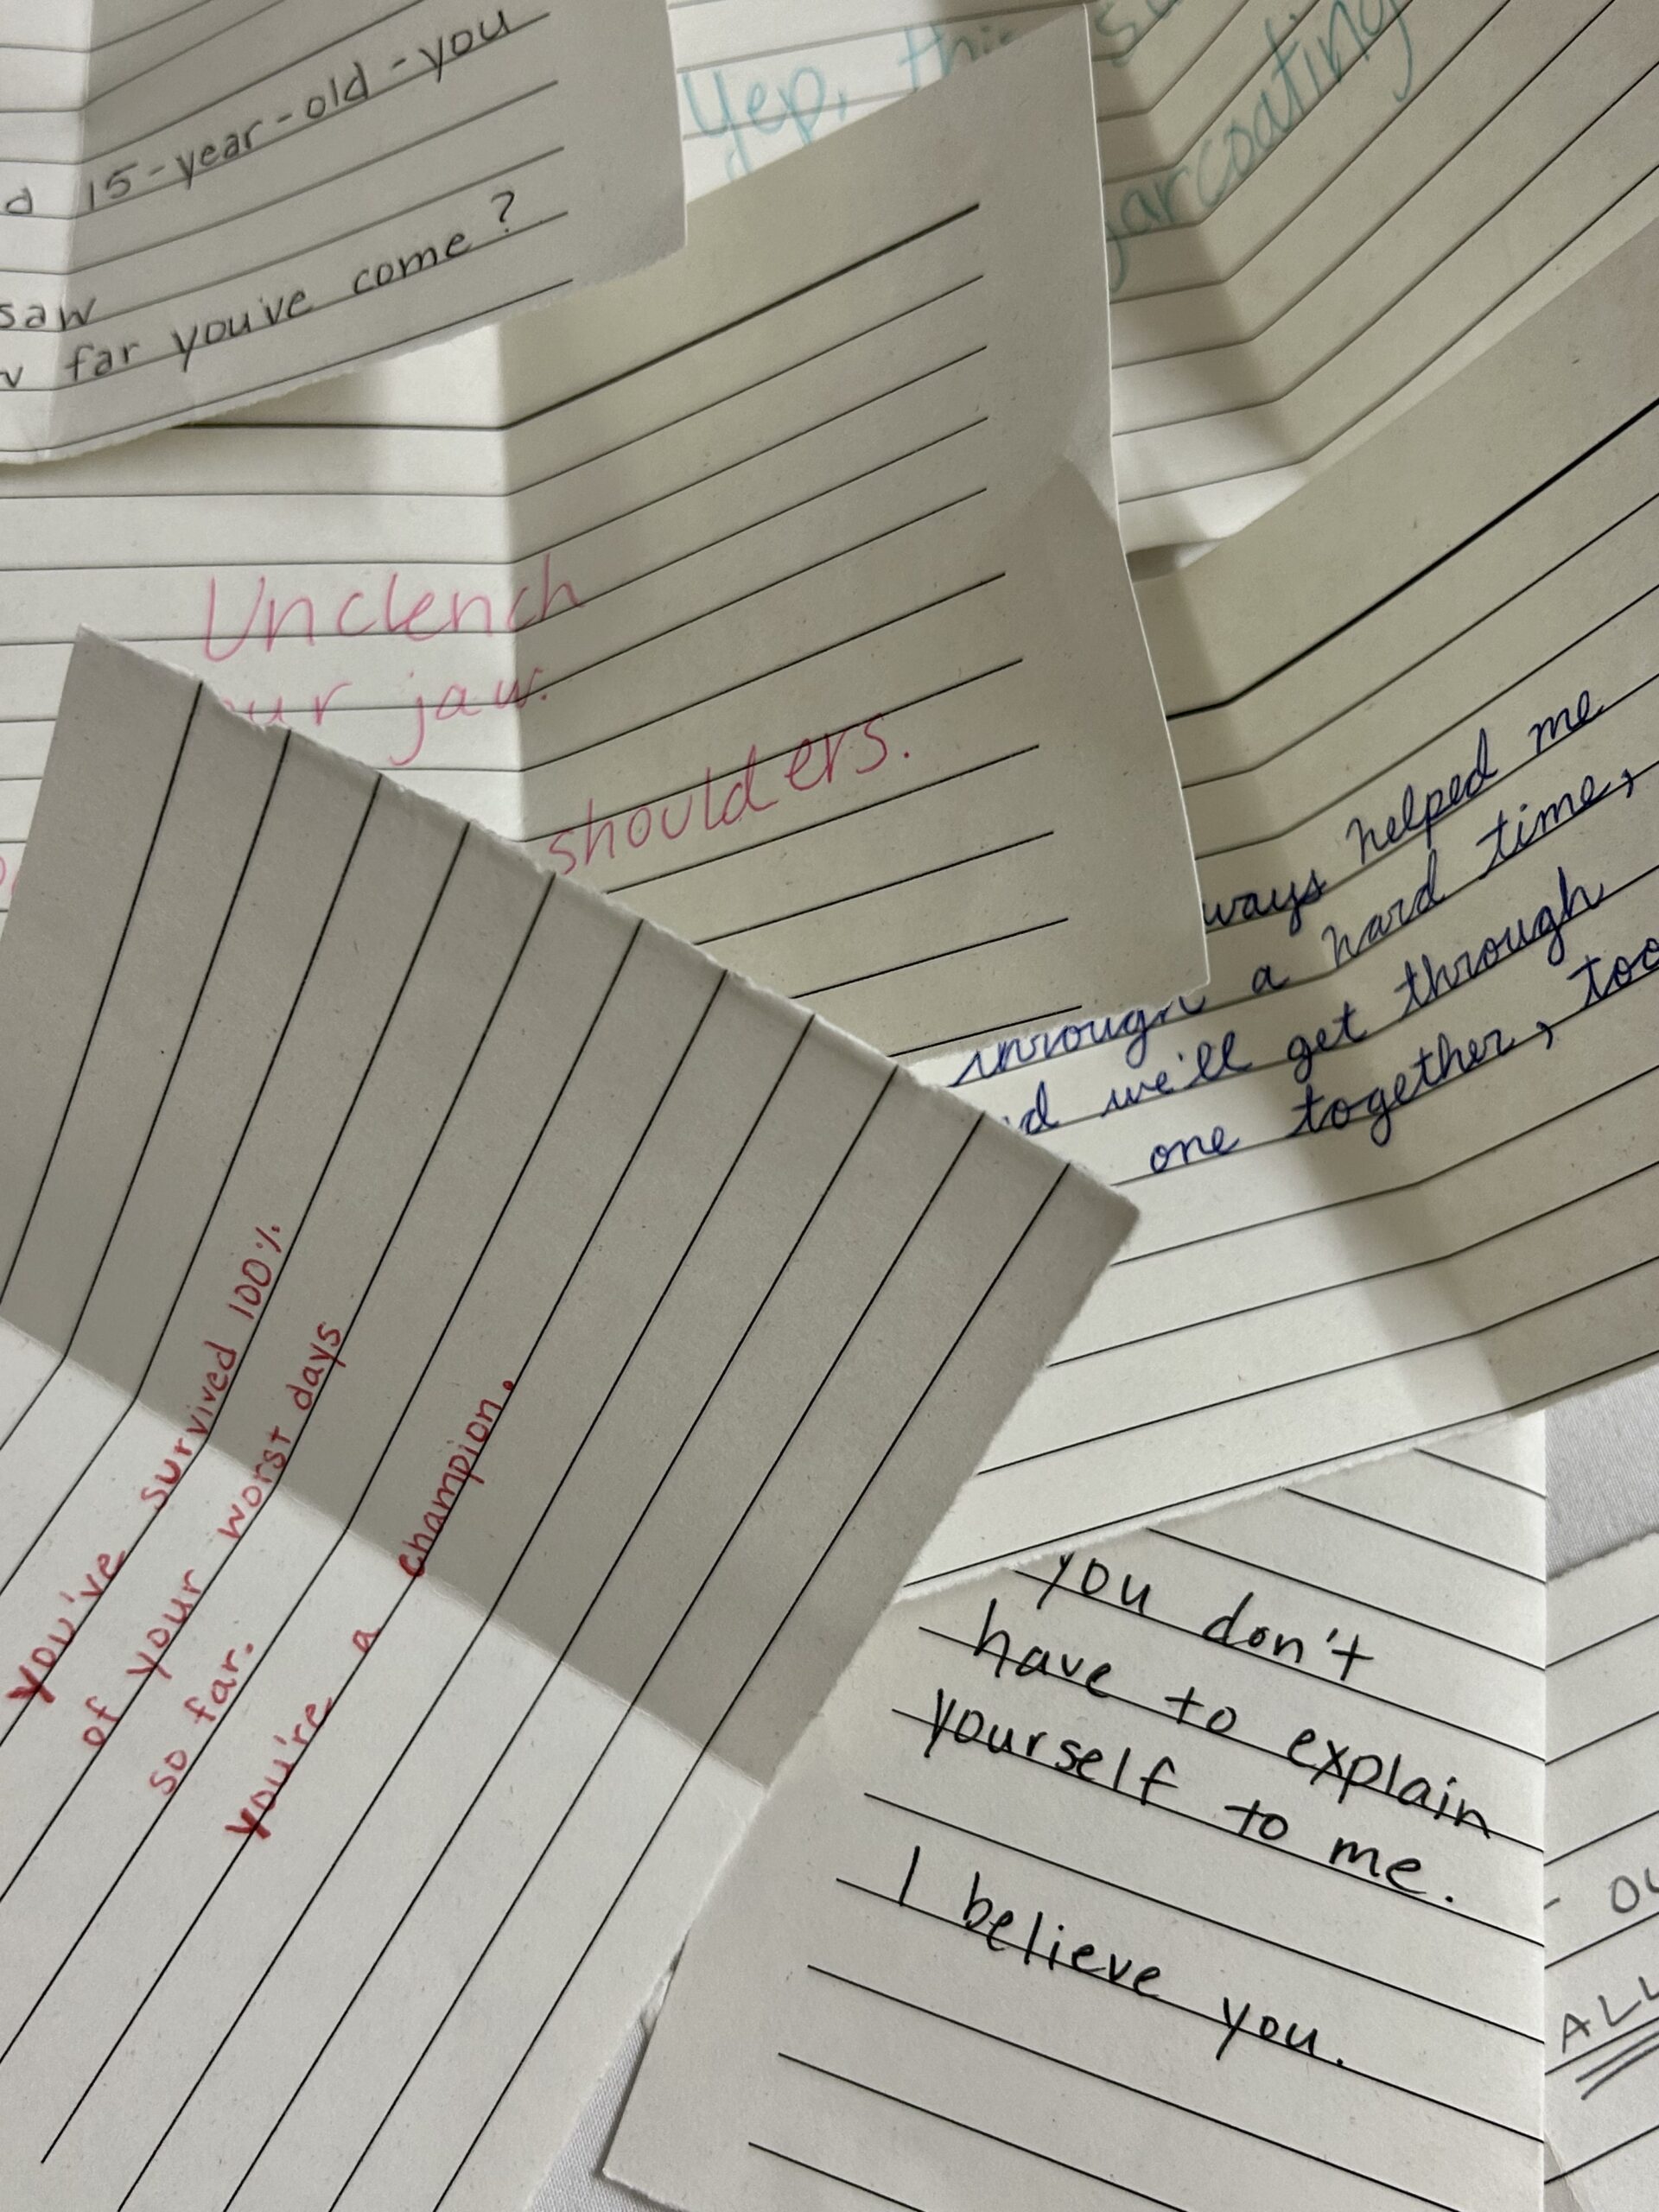 15-year-old-you
saw
far you've come?
Yep,
Unclench
jaw.
shoulders.
helped me
a hard time,
we'll get through
one together, too
You've survived 100%
of your worst days
so far.
You're a champion.
you don't
have to explain
yourself to me.
I believe you.
ALL